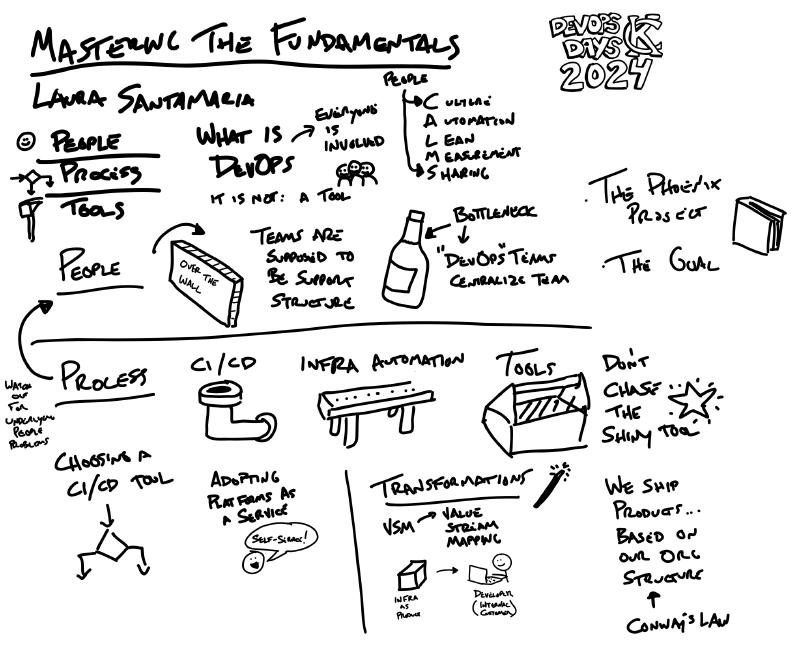 MASTERING THE FUNDAMENTALS
DEVOPS
DAYS KC
2024
LAURA SANTAMARIA
PEOPLE
PROCESS
TOOLS
WHAT IS
DEVOPS
EVERYONE
IS
INVOLVED
IT IS NOT: A TOOL
PEOPLE
CULTURE
AUTOMATION
LEAN
MEASUREMENT
SHARING
· THE PHOENIX
PROJECT
· THE GOAL
PEOPLE
OVER THE
WALL
TEAMS ARE
SUPPOSED TO
BE SUPPORT
STRUCTURE
BOTTLENECK
"DEVOPS" TEAMS
CENTRALIZE TEAM
WATCH
OUT
FOR
UNDERLYING
PEOPLE
PROBLEMS
PROCESS
CI/CD
INFRA AUTOMATION
TOOLS
DON'T
CHASE
THE
SHINY TOOL
CHOOSING A
CI/CD TOOL
ADOPTING
PLATFORMS AS
A SERVICE
SELF-SERVICE!
TRANSFORMATIONS
VSM → VALUE
STREAM
MAPPING
INFRA
AS
PRODUCT
DEVELOPER
(INTERNAL
CUSTOMER)
WE SHIP
PRODUCTS...
BASED ON
OUR ORG
STRUCTURE
CONWAY'S LAW